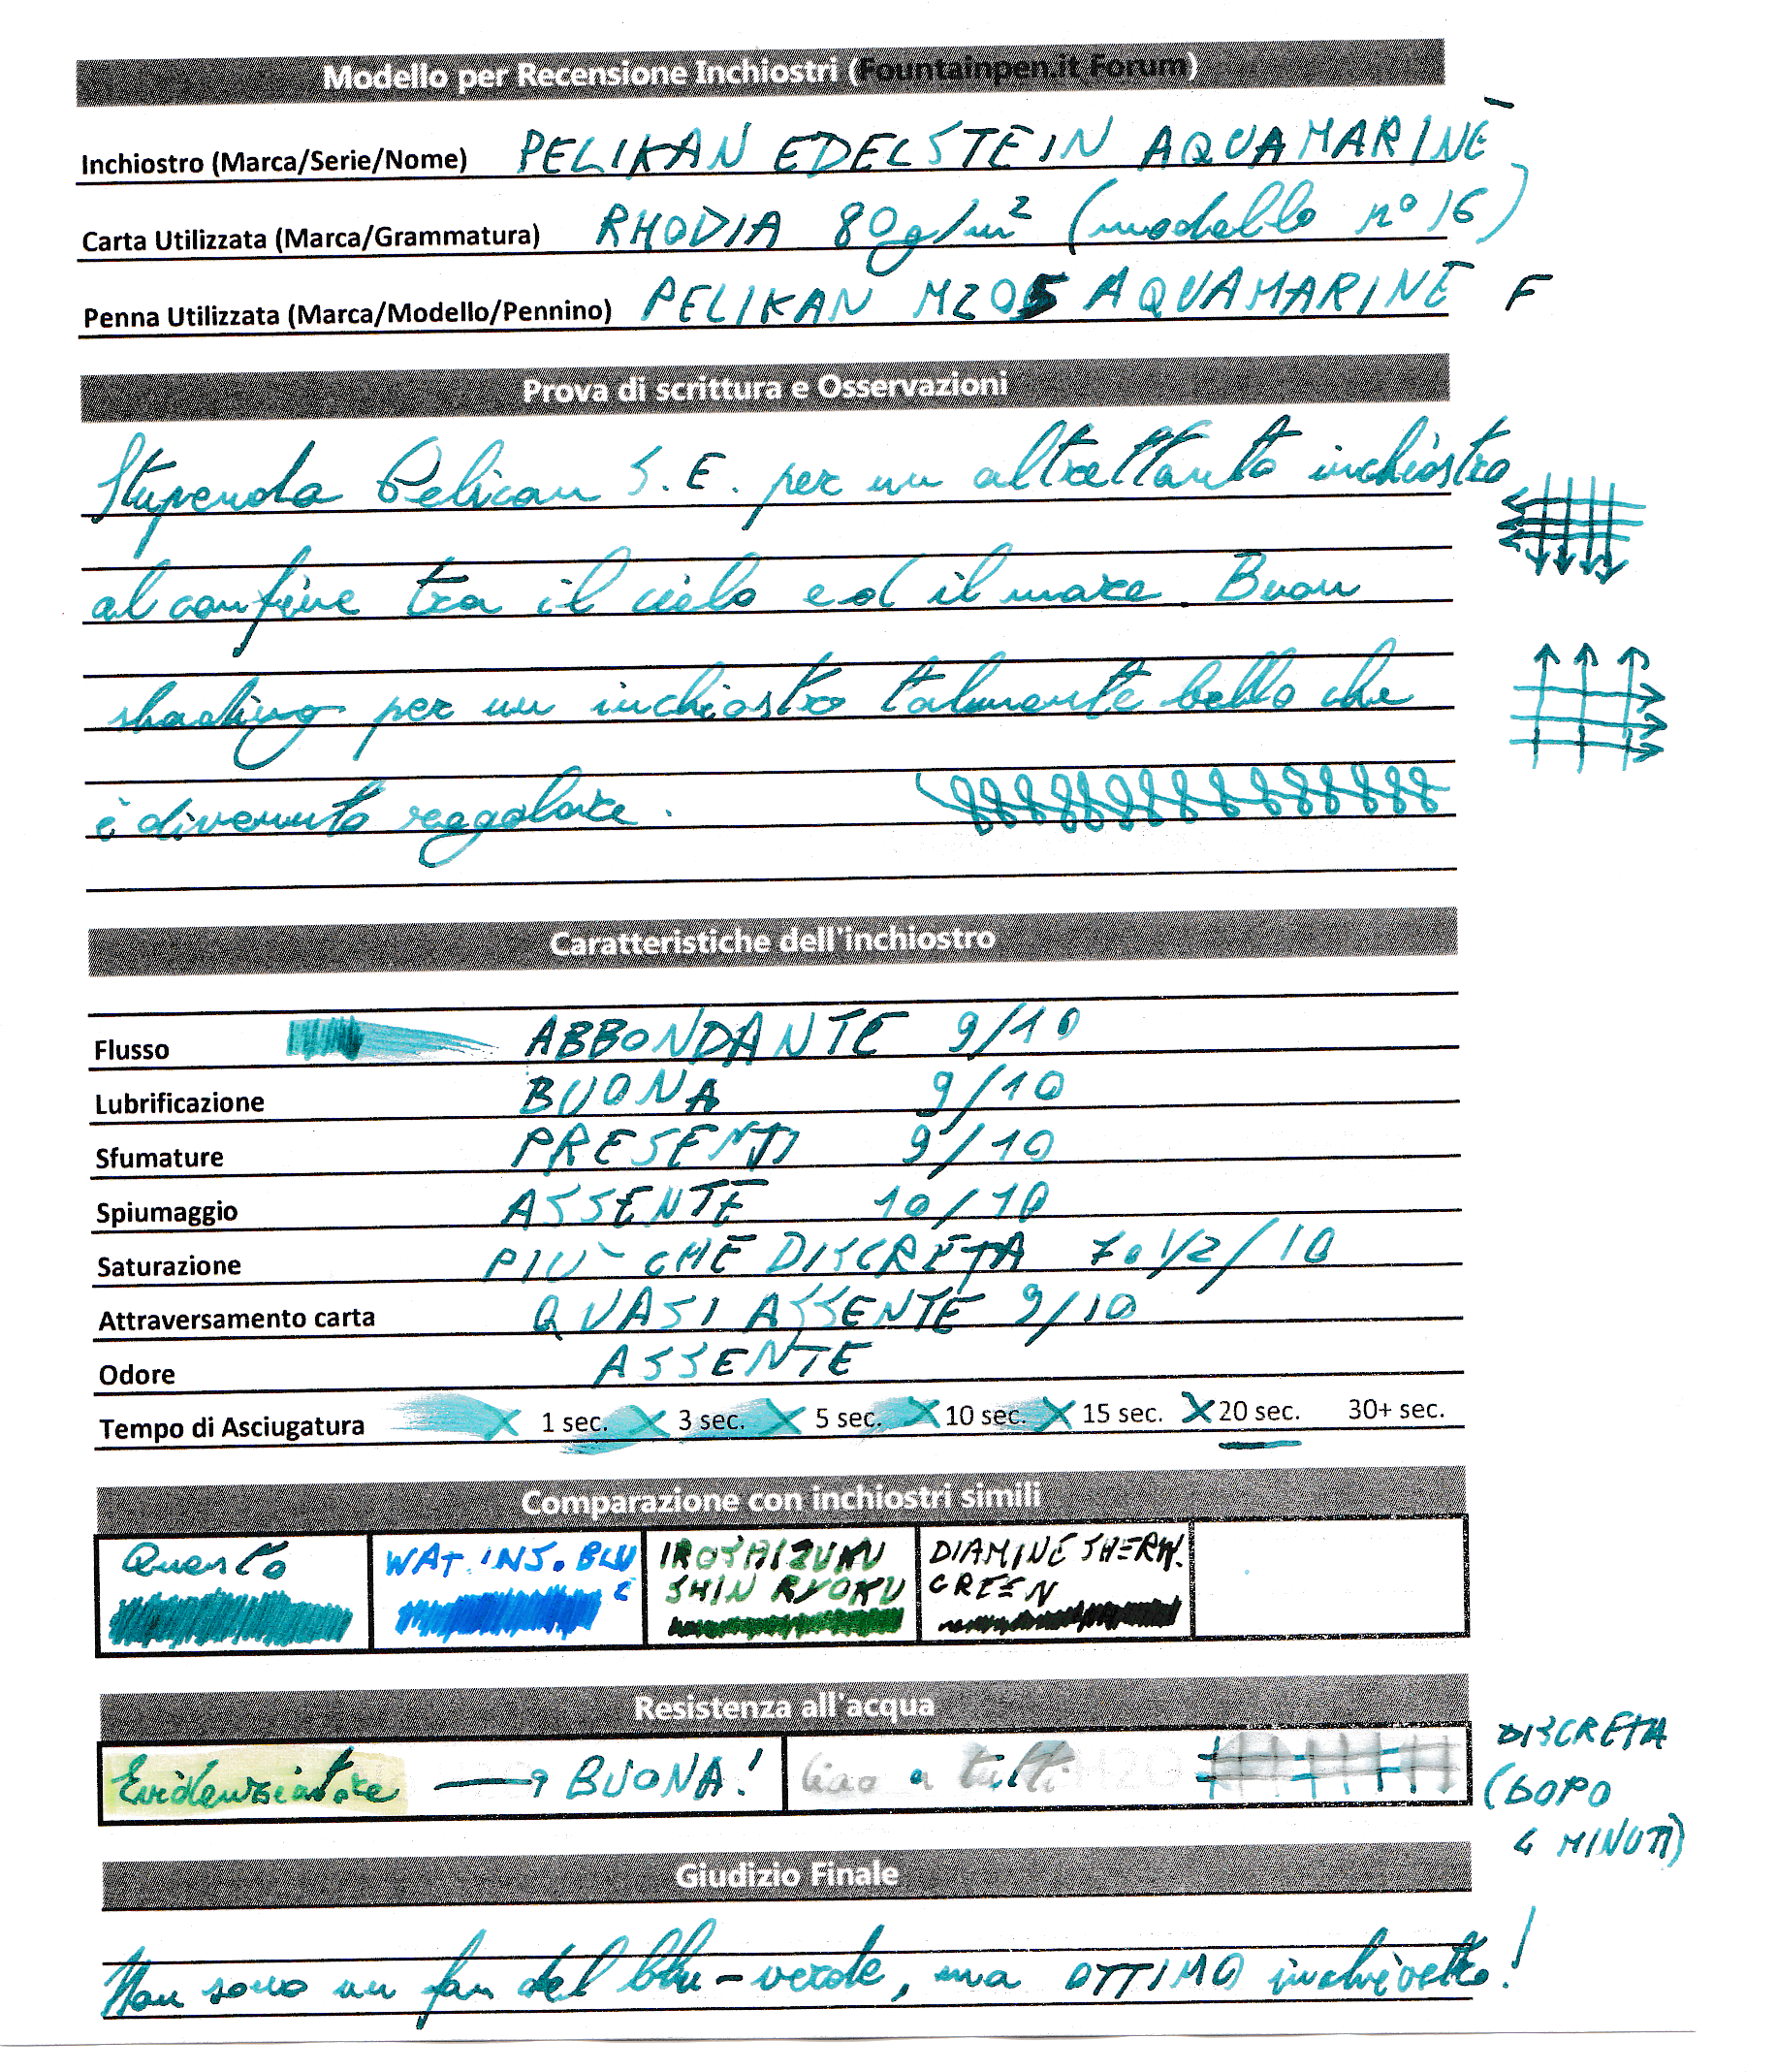 Modello per Recensione Inchiostri (Fountainpen.it Forum)
Inchiostro (Marca/Serie/Nome) PELIKAN EDELSTEIN AQUAMARINE
Carta Utilizzata (Marca/Grammatura) RHODIA 80g/m² (modello n° 16)
Penna Utilizzata (Marca/Modello/Pennino) PELIKAN M205 AQUAMARINE F
Prova di scrittura e Osservazioni
Stupenda Pelican S.E. per un altrettanto inchiostro
al confine tra il cielo ed il mare. Buon
shading per un inchiostro talmente bello che
è divenuto regolare.
Caratteristiche dell'inchiostro
Flusso ABBONDANTE 9/10
Lubrificazione BUONA 9/10
Sfumature PRESENTI 9/10
Spiumaggio ASSENTE 10/10
Saturazione PIU' CHE DISCRETA 7.1/2/10
Attraversamento carta QUASI ASSENTE 9/10
Odore ASSENTE
Tempo di Asciugatura X 1 sec. X 3 sec. X 5 sec. X 10 sec. X 15 sec. X 20 sec. 30+ sec.
Comparazione con inchiostri simili
Questo WAT. INS. BLUE IROSHIZUKU DIAMINE SHERW.
SHIN RYOKU GREEN
Resistenza all'acqua
Evidenziatore → BUONA! Ciao a tutti DISCRETA
(DOPO
4 MINUTI)
Giudizio Finale
Non sono un fan del blu-verde, ma OTTIMO inchiostro!